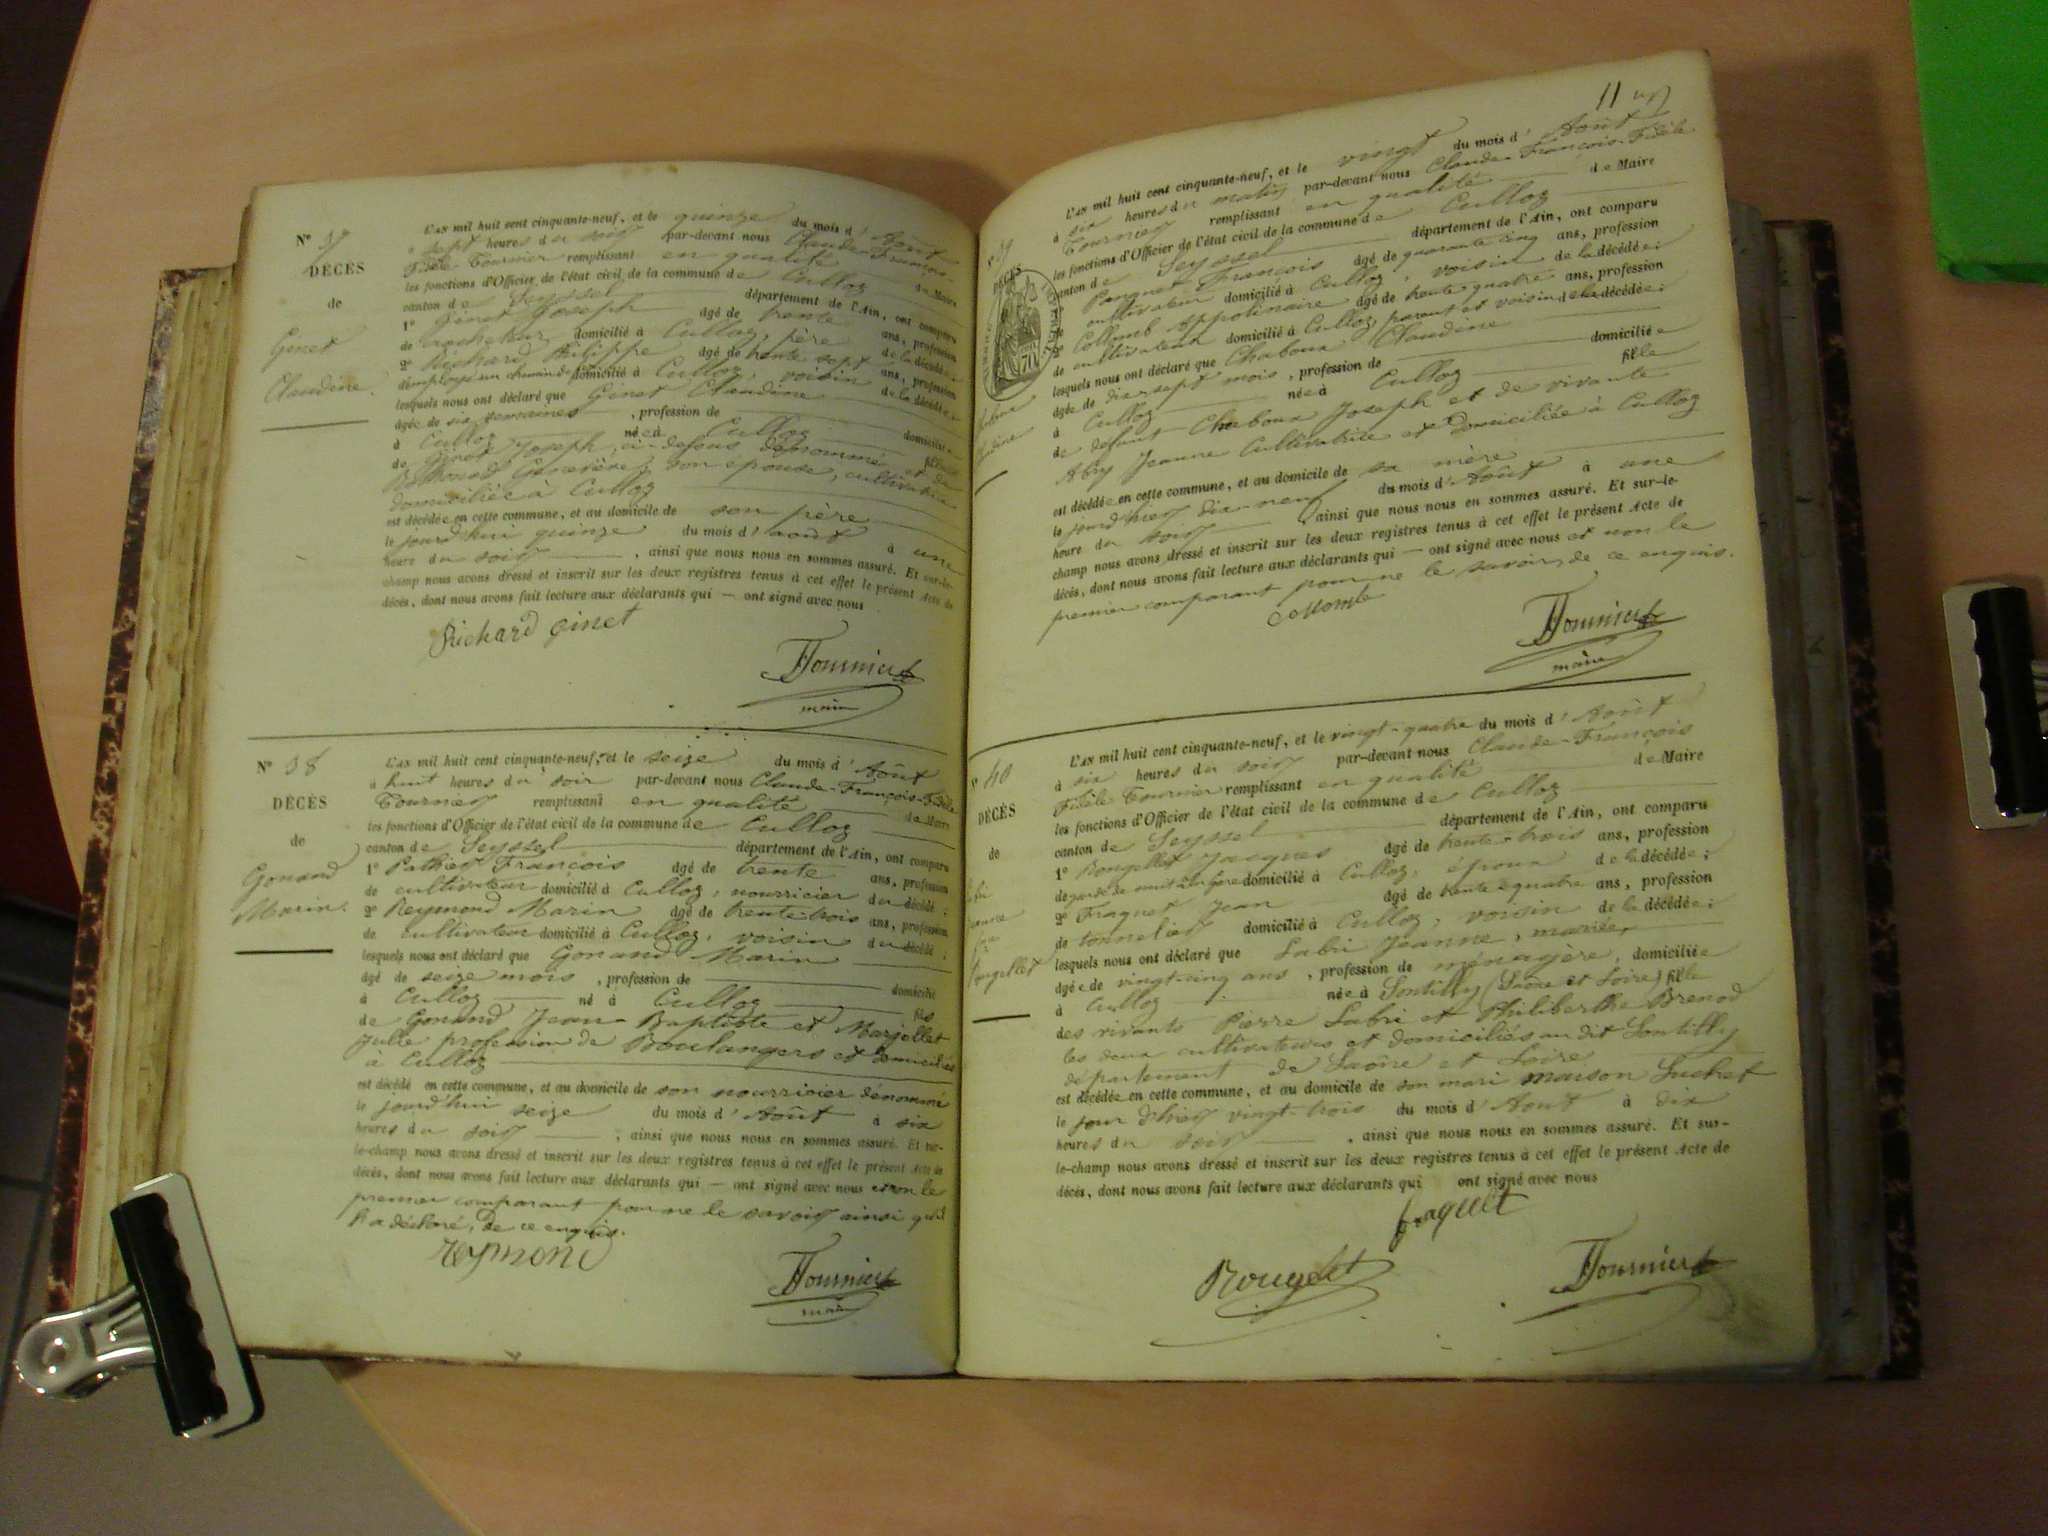 N° 37
DÉCÈS
de
Ginet
Claudine.
L'AN mil huit cent cinquante-neuf, et le quinze du mois d'Août
à sept heures du soir par-devant nous Claude-François-
Fidèle Tournier remplissant en qualité de Maire
les fonctions d'Officier de l'état civil de la commune de Culloz
canton de Seyssel département de l'Ain, ont comparu
1° Ginet Joseph âgé de trente ans, profession
de domicilié à Culloz, père de la décédée;
2° Richard Philippe âgé de trente sept ans, profession
d'employé au chemin de domicilié à Culloz, voisin de la décédée;
lesquels nous ont déclaré que Ginet Claudine
âgée de six semaines, profession de domiciliée
à Culloz née à Culloz fille
de Ginet Joseph, ci-dessus dénommé et de
Geneviève, son épouse, cultivatrice
domiciliée à Culloz
est décédée en cette commune, et au domicile de son père
le jourd'hui quinze du mois d'août à une
heure du soir, ainsi que nous nous en sommes assuré. Et sur-le-
champ nous avons dressé et inscrit sur les deux registres tenus à cet effet le présent Acte de
décès, dont nous avons fait lecture aux déclarants qui — ont signé avec nous
Richard Ginet
Tournier
maire
N° 38
DÉCÈS
de
Gonand
Marin.
L'AN mil huit cent cinquante-neuf, et le seize du mois d'Août
à huit heures du soir par-devant nous Claude-François-Fidèle
Tournier remplissant en qualité de Maire
les fonctions d'Officier de l'état civil de la commune de Culloz
canton de Seyssel département de l'Ain, ont comparu
1° Pathier François âgé de trente ans, profession
de cultivateur domicilié à Culloz, nourricier du décédé;
2° Reymond Marin âgé de trente trois ans, profession
de cultivateur domicilié à Culloz, voisin du décédé;
lesquels nous ont déclaré que Gonand Marin
âgé de seize mois, profession de domicilié
à Culloz né à Culloz fils
de Gonand Jean-Baptiste et Marjollet
Julie profession de Boulangers et domiciliés
à Culloz
est décédé en cette commune, et au domicile de son nourricier dénommé
le jourd'hui seize du mois d'Août à six
heures du soir, ainsi que nous nous en sommes assuré. Et sur-
le-champ nous avons dressé et inscrit sur les deux registres tenus à cet effet le présent Acte de
décès, dont nous avons fait lecture aux déclarants qui — ont signé avec nous et non le
premier comparant pour ne le savoir ainsi qu'il
l'a déclaré, de ce enquis.
Reymond
Tournier
maire
11
39
DÉCÈS
L'AN mil huit cent cinquante-neuf, et le vingt du mois d'Août
à six heures du matin par-devant nous Claude-François-Fidèle
Tournier remplissant en qualité de Maire
les fonctions d'Officier de l'état civil de la commune de Culloz
canton de Seyssel département de l'Ain, ont comparu
François âgé de quarante cinq ans, profession
de cultivateur domicilié à Culloz, voisin de la décédée;
2° Collomb Appolinaire âgé de trente quatre ans, profession
de cultivateur domicilié à Culloz, parent et voisin de la décédée;
lesquels nous ont déclaré que Chaboux Claudine
âgée de dix sept mois, profession de domiciliée
à Culloz née à Culloz fille
de défunt Chaboux Joseph et de vivante
Abry Jeanne Cultivatrice et domiciliée à Culloz
est décédée en cette commune, et au domicile de sa mère
le jourd'hier dix-neuf du mois d'Août à une
heure du soir, ainsi que nous nous en sommes assuré. Et sur-le-
champ nous avons dressé et inscrit sur les deux registres tenus à cet effet le présent Acte de
décès, dont nous avons fait lecture aux déclarants qui — ont signé avec nous et non le
premier comparant pour ne le savoir, de ce enquis.
Collomb
Tournier
maire
N° 40
DÉCÈS
de
L'AN mil huit cent cinquante-neuf, et le vingt-quatre du mois d'Août
à six heures du soir par-devant nous Claude-François
Fidèle Tournier remplissant en qualité de Maire
les fonctions d'Officier de l'état civil de la commune de Culloz
canton de Seyssel département de l'Ain, ont comparu
1° Rougellet Jacques âgé de trente-trois ans, profession
de garde de nuit à la gare domicilié à Culloz, époux de la décédée;
2° Fraquet Jean âgé de trente quatre ans, profession
de tonnelier domicilié à Culloz, voisin de la décédée;
lesquels nous ont déclaré que Labri Jeanne, mariée,
âgée de vingt-cinq ans, profession de ménagère, domiciliée
à Culloz née à Sontilly (Saône et Loire) fille
des vivants Pierre Labri et Philiberthe Brenod
les deux cultivateurs et domiciliés au dit Sontilly
département de Saône et Loire
est décédée en cette commune, et au domicile de son mari maison Suchet
le jour d'hier vingt-trois du mois d'Août à dix
heures du soir, ainsi que nous nous en sommes assuré. Et sur-
le-champ nous avons dressé et inscrit sur les deux registres tenus à cet effet le présent Acte de
décès, dont nous avons fait lecture aux déclarants qui ont signé avec nous
fraquet
Rougelet
Tournier